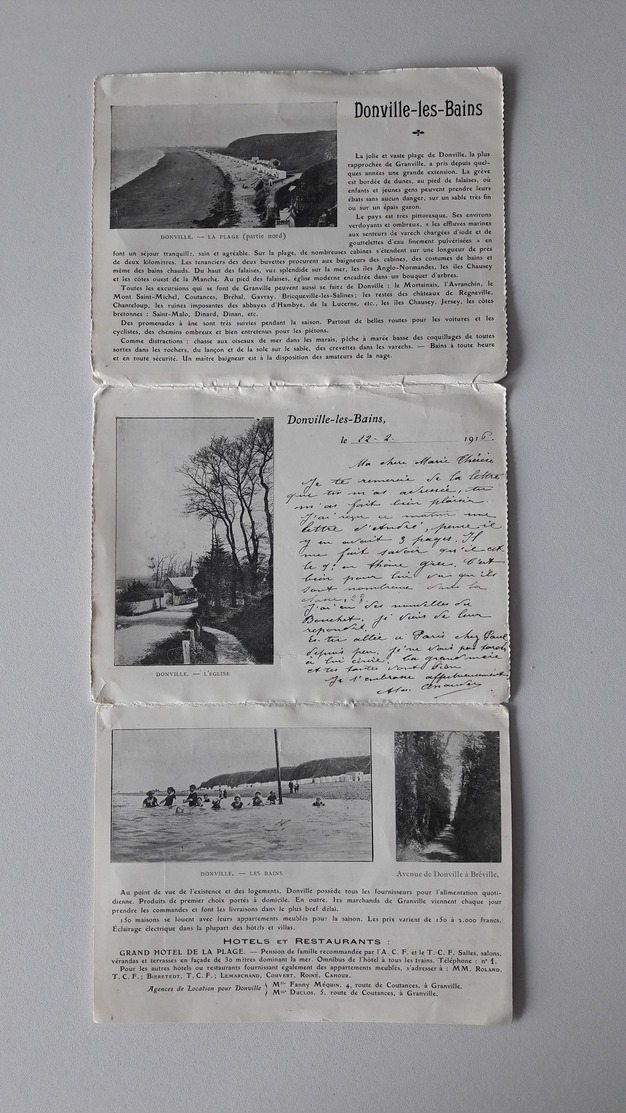 Donville-les-Bains
La jolie et vaste plage de Donville, la plus
rapprochée de Granville, a pris depuis quel-
ques années une grande extension. La grève
est bordée de dunes, au pied de falaises, où
enfants et jeunes gens peuvent prendre leurs
ébats sans aucun danger, sur un sable très fin
ou sur un épais gazon.
Le pays est très pittoresque. Ses environs
verdoyants et ombreux, « les effluves marines
aux senteurs de varech chargées d'iode et de
gouttelettes d'eau finement pulvérisées » en
DONVILLE. — LA PLAGE (partie nord)
font un séjour tranquille, sain et agréable. Sur la plage, de nombreuses cabines s'étendent sur une longueur de près
de deux kilomètres. Les tenanciers des deux buvettes procurent aux baigneurs des cabines, des costumes de bains et
même des bains chauds. Du haut des falaises, vue splendide sur la mer, les îles Anglo-Normandes, les îles Chausey
et les côtes ouest de la Manche. Au pied des falaises, église moderne encadrée dans un bouquet d'arbres.
Toutes les excursions qui se font de Granville peuvent aussi se faire de Donville : le Mortainais, l'Avranchin, le
Mont Saint-Michel, Coutances, Bréhal, Gavray, Bricqueville-les-Salines; les restes des châteaux de Régnéville,
Chanteloup, les ruines imposantes des abbayes d'Hambye, de la Lucerne, etc., les îles Chausey, Jersey, les côtes
bretonnes : Saint-Malo, Dinard, Dinan, etc.
Des promenades à âne sont très suivies pendant la saison. Partout de belles routes pour les voitures et les
cyclistes, des chemins ombreux et bien entretenus pour les piétons.
Comme distractions : chasse aux oiseaux de mer dans les marais, pêche à marée basse des coquillages de toutes
sortes dans les rochers, du lançon et de la sole sur le sable, des crevettes dans les varechs. — Bains à toute heure
et en toute sécurité. Un maître baigneur est à la disposition des amateurs de la nage.
Donville-les-Bains,
le 22. 2. 191
Ma chère Marie Thérèse
Je te remercie de la lettre
que tu m'as adressée, tu
m'as fait bien plaisir
J'ai reçu ce matin une
lettre d'André,
y en avait 3 pages. Il
me fait savoir qu'il est
le 9e en thème grec. C'est
bien pour lui vu qu'ils
sont nombreux dans la
classe, 28
J'ai eu des nouvelles de
Bouchet, je viens de leur
répondre.
Es-tu allée à Paris chez Paul
depuis peu, je ne vais pas tarder
à lui écrire, la grand'mère
et tes tantes vont bien
Je t'embrasse affectueusement
DONVILLE. — L'ÉGLISE
DONVILLE. — LES BAINS
Avenue de Donville à Bréville.
Au point de vue de l'existence et des logements, Donville possède tous les fournisseurs pour l'alimentation quoti-
dienne. Produits de premier choix portés à domicile. En outre, les marchands de Granville viennent chaque jour
prendre les commandes et font les livraisons dans le plus bref délai.
150 maisons se louent avec leurs appartements meublés pour la saison. Les prix varient de 150 à 2.000 francs.
Éclairage électrique dans la plupart des hôtels et villas.
HOTELS ET RESTAURANTS :
GRAND HOTEL DE LA PLAGE. — Pension de famille recommandée par l'A. C. F. et le T. C. F. Salles, salons,
vérandas et terrasses en façade de 30 mètres dominant la mer. Omnibus de l'hôtel à tous les trains. Téléphone : n° 1.
Pour les autres hôtels ou restaurants fournissant également des appartements meublés, s'adresser à : MM. ROLAND,
T. C. F.; T. C. F.; LEMARCHAND, COUVERT, ROINÉ, CAHOUR.
Agences de Location pour Donville { Mme Fanny MÉQUIN, 4, route de Coutances, à Granville.
Mme DUCLOS, 5, route de Coutances, à Granville.